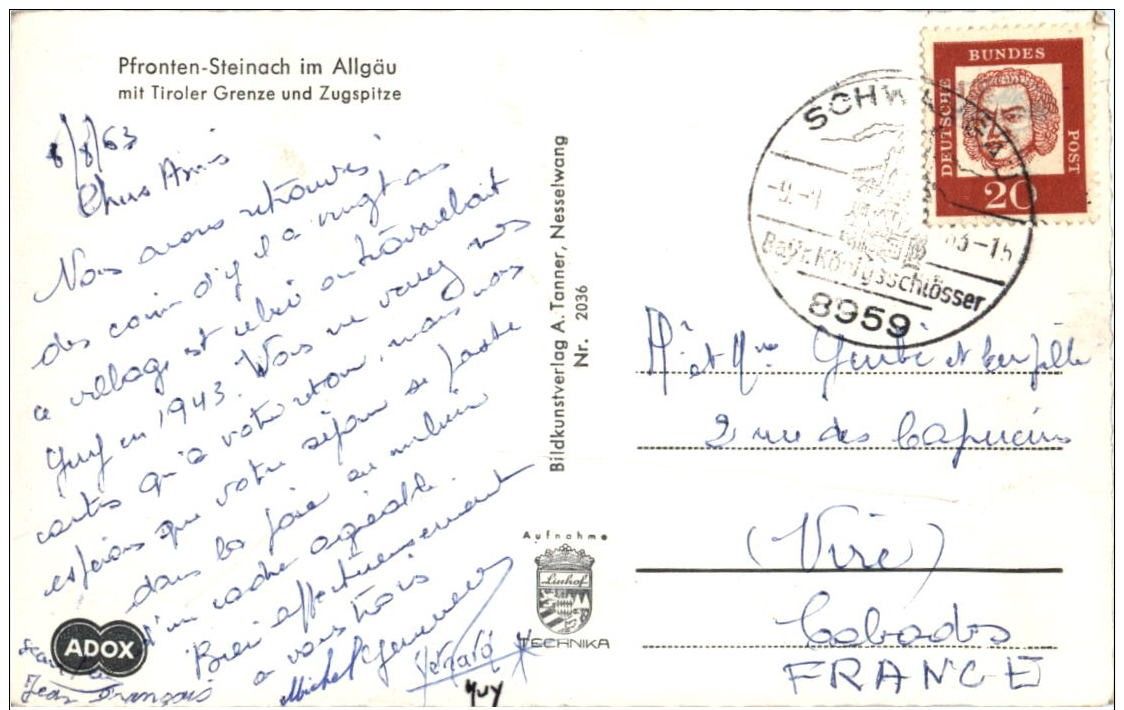 Pfronten-Steinach im Allgäu
mit Tiroler Grenze und Zugspitze
8/8/63
Chers Amis
Nous avons retrouvés
des coins d'il y a vingt ans
ce village est celui où travaillait
Guy en 1943. Vous ne verrez nos
cartes qu'à votre retour, mais nous
espérons que votre séjour se passe
dans la joie au milieu
d'un cadre agréable.
Bien affectueusement
à vous trois
Michel Genevieve
Jean Francois
Guy
Bildkunstverlag A. Tanner, Nesselwang
Nr. 2036
Aufnahme
Linhof
TECHNIKA
ADOX
DEUTSCHE
BUNDES
POST
20
SCHWANGAU
63-15
Bayr. Königsschlösser
8959
Mr et Mme et leur fille
2 rue des Capucins
(Vire)
Calvados
FRANCE